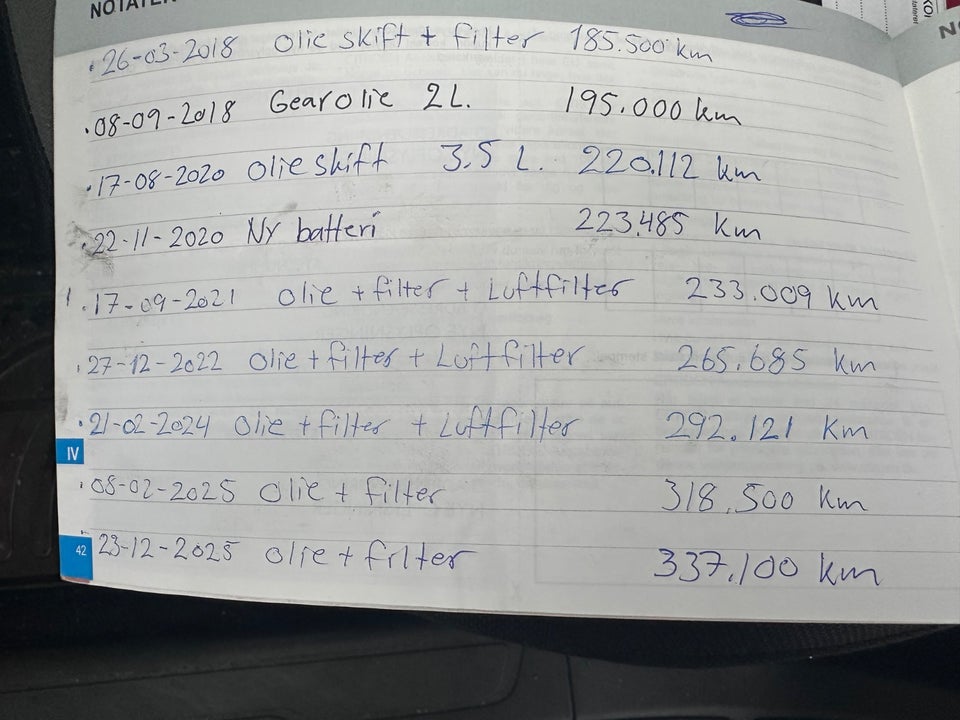 NOTATER
26-03-2018 Olie skift + filter 185.500 km
08-09-2018 Gearolie 2L. 195.000 km
17-08-2020 Olie skift 3.5 L. 220.112 km
22-11-2020 Ny batteri 223.485 km
17-09-2021 Olie + filter + Luftfilter 233.009 km
27-12-2022 Olie + filter + Luftfilter 265.685 km
21-02-2024 Olie + filter + Luftfilter 292.121 km
IV
08-02-2025 Olie + filter 318.500 km
42
23-12-2025 Olie + filter 337.100 km